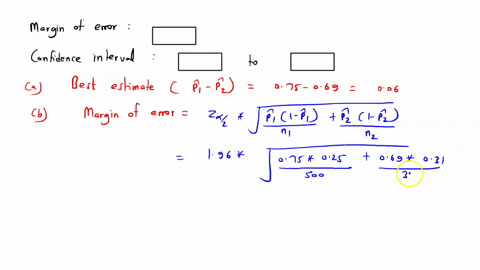 Margin of error :
Confidence interval : to
(a) Best estimate ( p̂1 - p̂2 ) = 0.75 - 0.69 = 0.06
(b) Margin of error = Zα/2 * √ p̂1 (1-p̂1) / n1 + p̂2 (1-p̂2) / n2
= 1.96 * √ 0.75 * 0.25 / 500 + 0.69 * 0.31 / 3